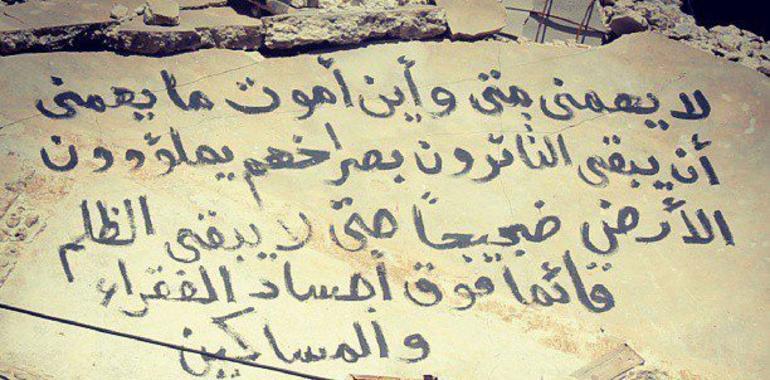 لا يهمنى متى وأين أموت ما يهمنى
أن يبقى الثائرون بصراخهم يملؤوون
الأرض ضجيجاً حتى لا يبقى الظلم
قائماً فوق أجساد الفقراء
والمساكين